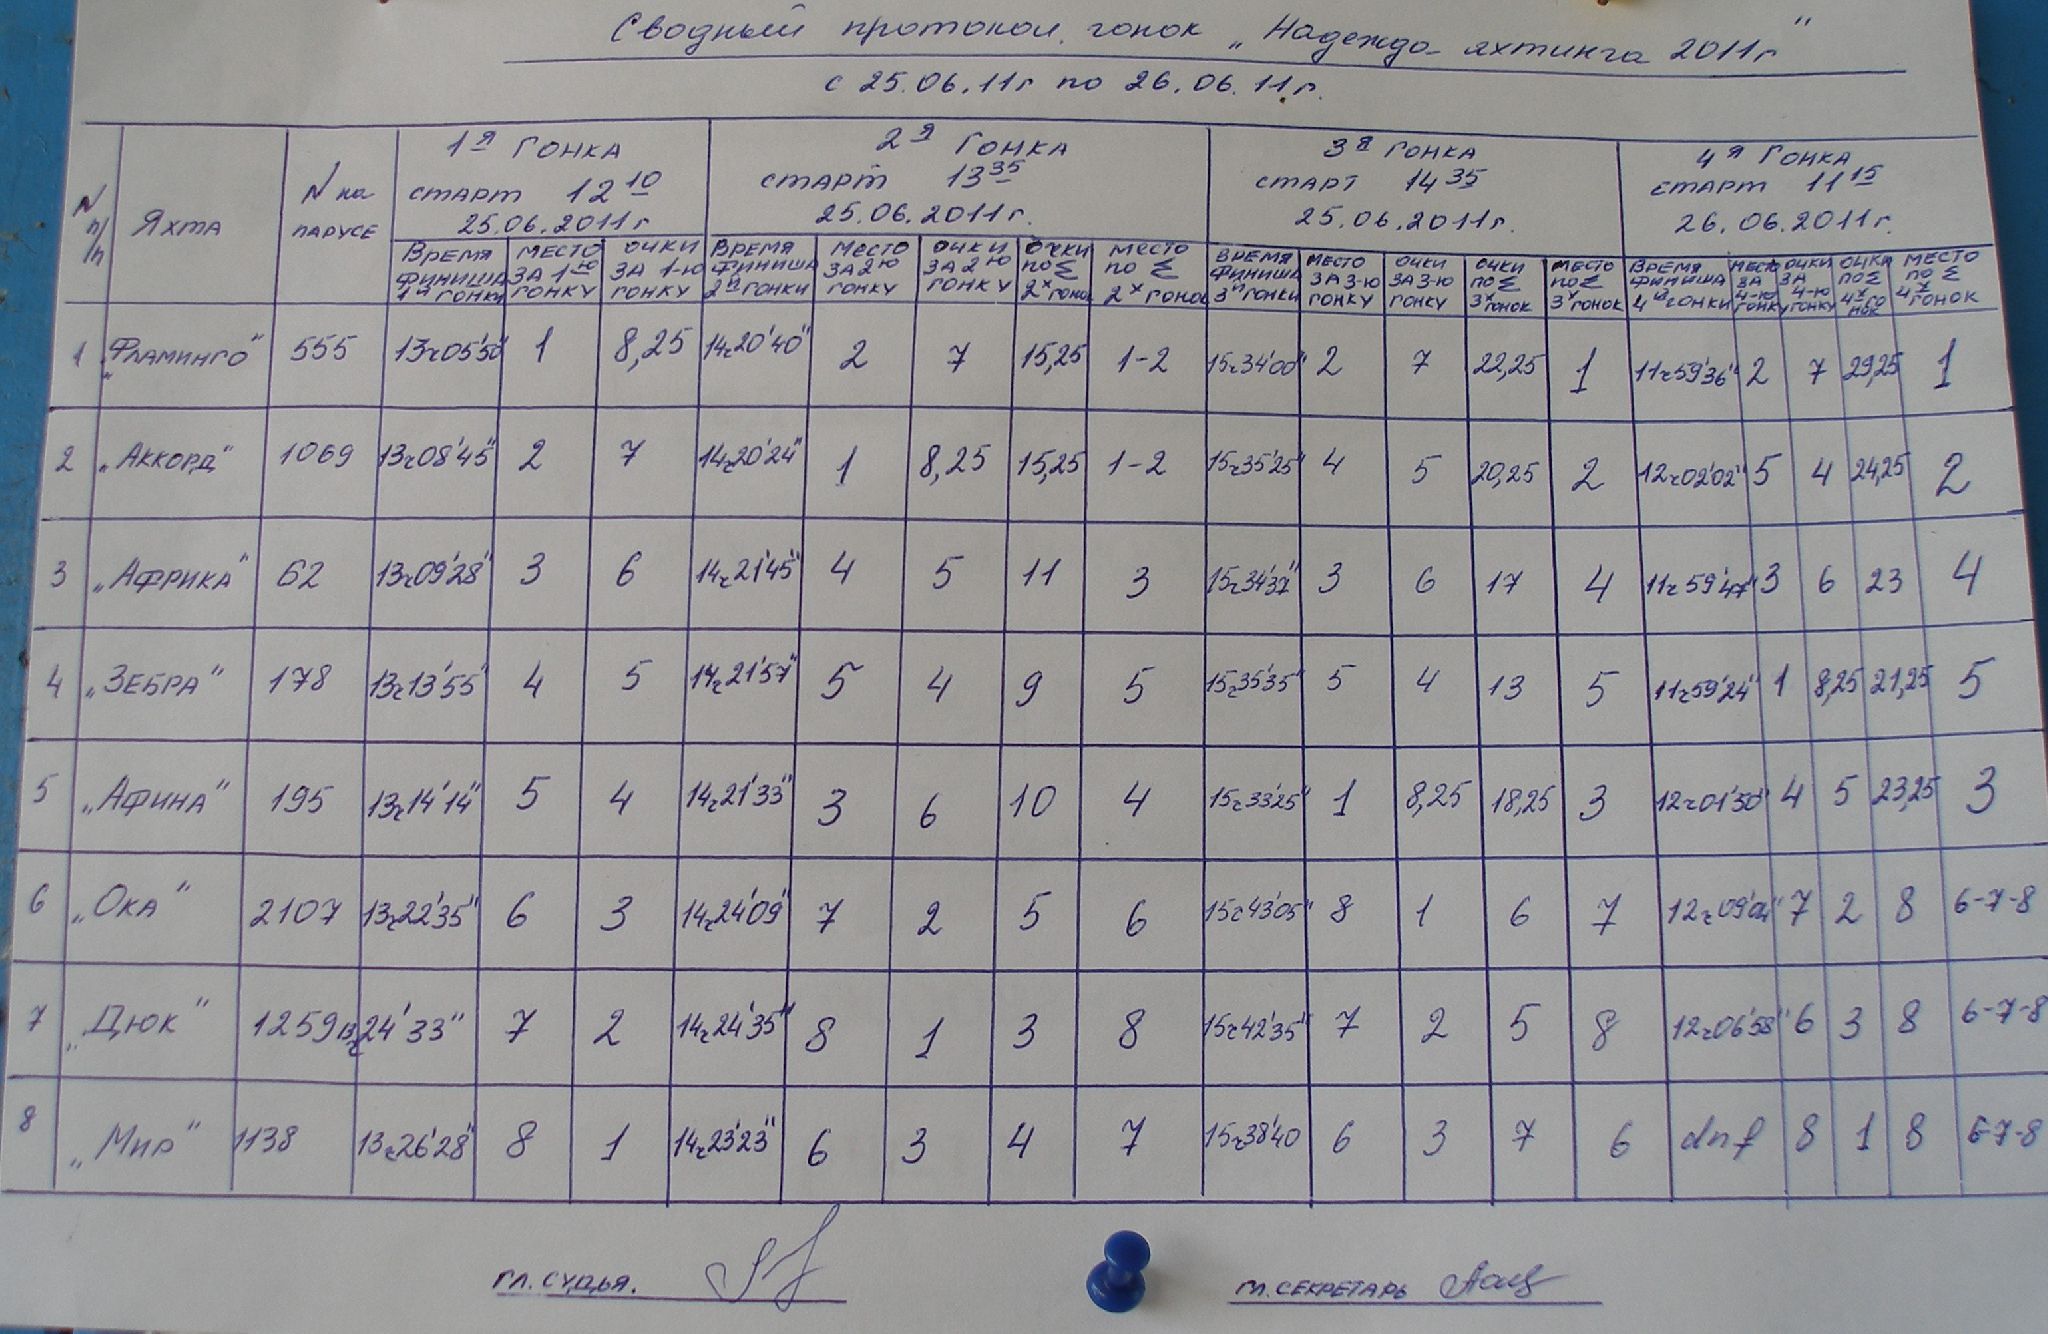 Сводный протокол гонок „Надежда яхтинга 2011г"
с 25.06.11г по 26.06.11г.
N п/п Яхта N на парусе 1я гонка старт 12 10 25.06.2011г 2я гонка старт 13 35 25.06.2011г. 3я гонка старт 14 35 25.06.2011г. 4я гонка старт 11 15 26.06.2011г.
Время финиша 1й гонки Место за 1-ю гонку Очки за 1-ю гонку Время финиша 2й гонки Место за 2ю гонку Очки за 2ю гонку Очки по Σ 2х гонок Место по Σ 2х гонок Время финиша 3й гонки Место за 3-ю гонку Очки за 3-ю гонку Очки по Σ 3х гонок Место по Σ 3х гонок Время финиша 4й гонки Место за 4-ю гонку Очки за 4-ю гонку Очки по Σ 4х гонок Место по Σ 4х гонок
1 „Фламинго" 555 13ч05'50" 1 8,25 14ч20'40" 2 7 15,25 1-2 15ч34'00" 2 7 22,25 1 11ч59'36" 2 7 29,25 1
2 „Аккорд" 1069 13ч08'45" 2 7 14ч20'24" 1 8,25 15,25 1-2 15ч35'25" 4 5 20,25 2 12ч02'02" 5 4 24,25 2
3 „Африка" 62 13ч09'28" 3 6 14ч21'45" 4 5 11 3 15ч34'37" 3 6 17 4 11ч59'47" 3 6 23 4
4 „Зебра" 178 13ч13'55" 4 5 14ч21'57" 5 4 9 5 15ч35'35" 5 4 13 5 11ч59'24" 1 8,25 21,25 5
5 „Афина" 195 13ч14'14" 5 4 14ч21'33" 3 6 10 4 15ч33'25" 1 8,25 18,25 3 12ч01'50" 4 5 23,25 3
6 „Ока" 2107 13ч22'35" 6 3 14ч24'09" 7 2 5 6 15ч43'05" 8 1 6 7 12ч09'04" 7 2 8 6-7-8
7 „Дюк" 1259 13ч24'33" 7 2 14ч24'35" 8 1 3 8 15ч42'35" 7 2 5 8 12ч06'58" 6 3 8 6-7-8
8 „Мир" 1138 13ч26'28" 8 1 14ч23'23" 6 3 4 7 15ч38'40 6 3 7 6 dnf 8 1 8 6-7-8
гл. судья. гл. секретарь